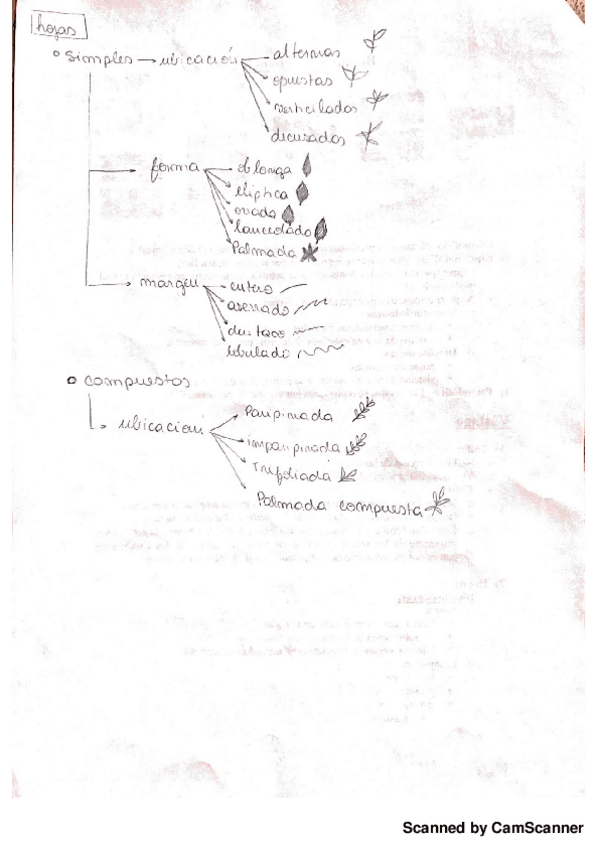 hojas
Simples → ubicación alternas
opuestas
verticilados
decusados
forma oblonga
eliptica
ovada
lanceolado
Palmada
margen entero
aserrado
dentado
lobulado
compuestos
ubicacion Paripinada
imparipinada
Trifoliada
Palmada compuesta
Scanned by CamScanner